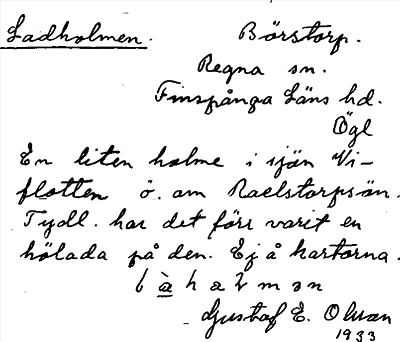 Ladholmen. Börstorp.
Regna sn.
Finspånga Läns hd.
Ögl
En liten holme i sjön Vi-
flotten ö. om Raelstorpsån.
Tydl. har det förr varit en
hölada på den. Ej å kartorna.
Gustaf E. Olsson
1933